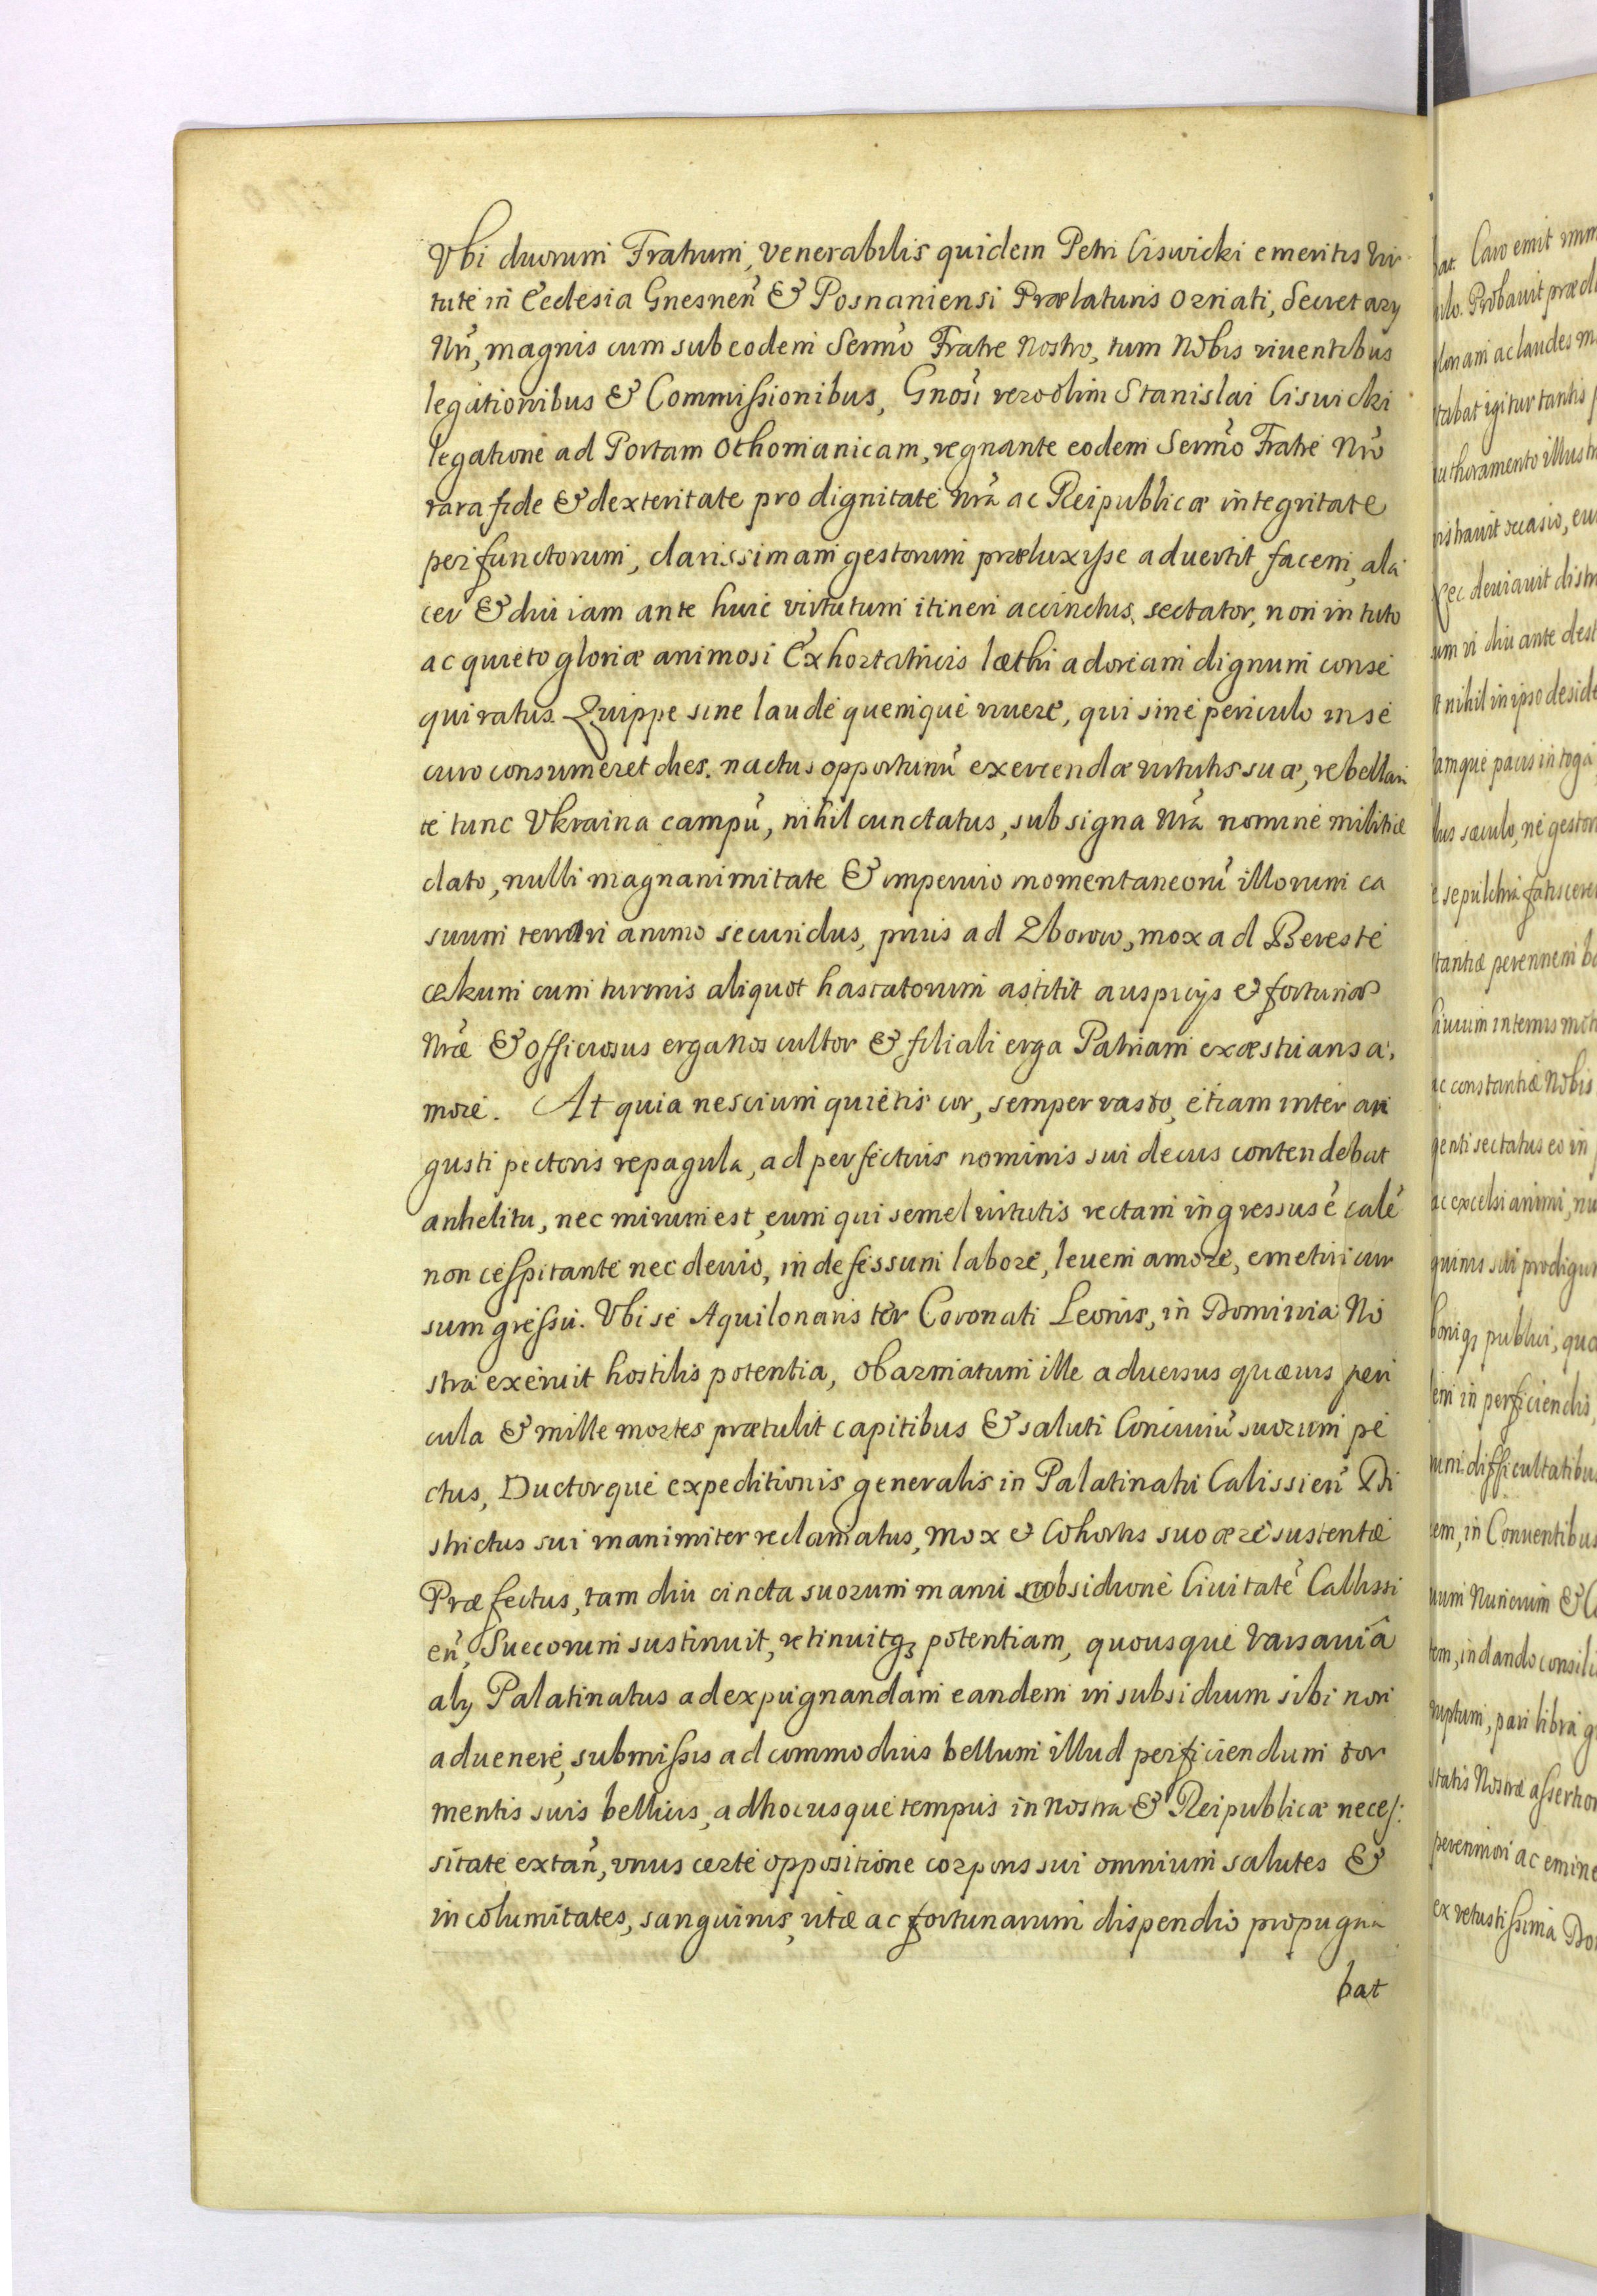 Vbi duorum Fratrum, Venerabilis quidem Petri Ciswicki emeritis vir
tute in Ecclesia Gnesneñ & Posnaniensi Prælaturis ornati, Secretarÿ
Nrĩ, magnis cum sub eodem Sermo Fratre Nostro, tum Nobis viventibus
legationibus & Commissionibus, Gnosi vero olim Stanislai Ciswicki
legatione ad Portam Othomanicam, regnante eodem Sermo Fratre Nro
rara fide & dexteritate pro dignitate Nra ac Reipublicæ integritate
perfunctorum, clarissimam gestorum præluxisse aduertit facem, ala
cer & diu iam ante huic virtutum itineri accinctus sectator, non in tuto
ac quieto gloriæ animosi Exhortatricis læthi adoream dignum conse
qui ratus. Quippe sine laude quemque viuere, qui sine periculo in se
curo consumeret dies. nactus opportunũ exercendæ virtutis suæ, rebellan
te tunc Vkraina campũ, nihil cunctatus, sub signa Nra nomine militiæ
dato, nulli magnanimitate & imperuio momentaneorũ illorum ca
suum terrori animo secundus, prius ad Zborow, mox ad Bereste
cækum cum turmis aliquot hastatorum astitit auspicÿs & fortunæ
Nræ & officiosus erga Nos cultor & filiali erga Patriam exæstuans a,
more. At quia nescium quietis cor, semper vasto, etiam inter an
gusti pectoris repagula, ad perfectius nominis sui decus contendebat
anhelitu, nec mirum est, eum qui semel virtutis rectam ingressus ẽ calẽ
non cespitante nec deuio, indefessum labore, leuem amore, emetiri cur
sum gressu. Vbi se Aquilonaris ter Coronati Leonis, in Dominia No
stra exeruit hostilis potentia, obarmatum ille aduersus quæuis peri
cula & mille mortes prætulit capitibus & saluti Conciuiũ suorum pe
ctus, Ductorque expeditionis generalis in Palatinatu Calissieñ Di
strictus sui unanimiter reclamatus, mox & Cohortis suo ære sustentæ
Præfectus, tam diu cincta suorum manu obsidione Ciuitatẽ Callissi
eñ, Suecorum sustinuit, retinuitqȝ potentiam, quousque Varsauiâ
alÿ Palatinatus ad expugnandam eandem in subsidium sibi non
aduenere, submissis ad commodius bellum illud perficiendum tor
mentis suis bellicis, adhocusque tempus in Nostra & Reipublicæ neces:
sitate extañ, vnus certe oppositione corporis sui omnium salutes &
incolumitates, sanguinis, vitæ ac fortunarum dispendio propugna
bat